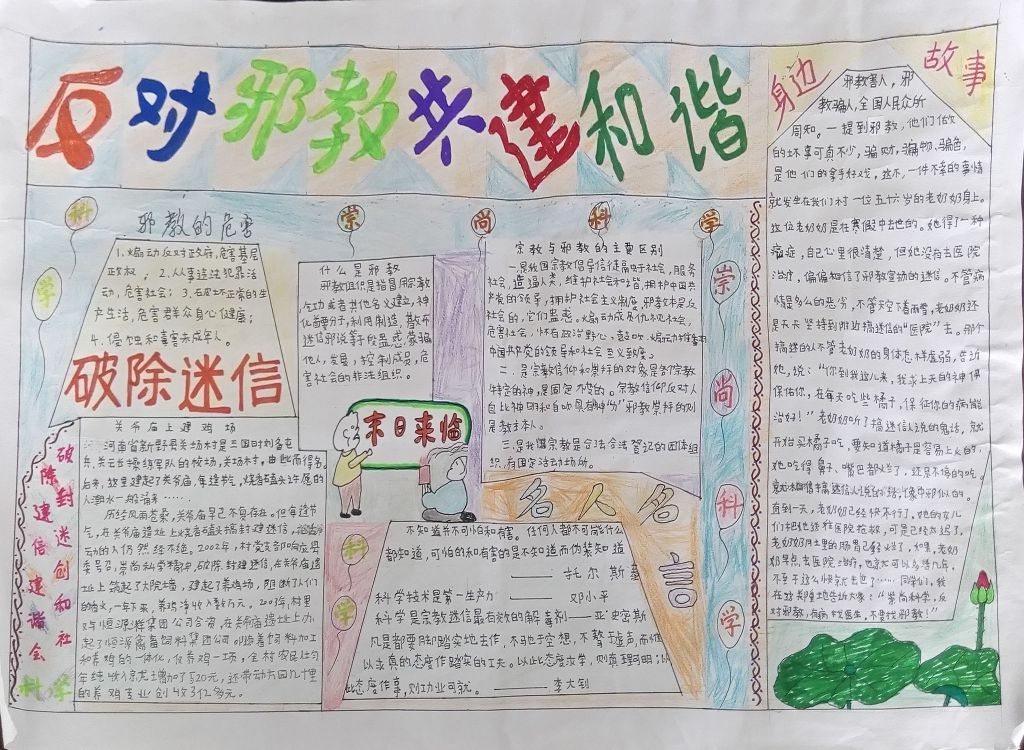 反对邪教共建和谐
科 学 崇 尚 科 学
邪教的危害
1.煽动反对政府,危害基层
政权, 2.从事违法犯罪活
动,危害社会; 3.破坏正常的生
产生活,危害群众身心健康;
4.侵蚀和毒害未成年人。
破除迷信
关爷庙上建鸡场
河南省新野县关场村是三国时刘备屯
兵、关云长操练军队的校场,关场村,由此而得名。
后来,这里建起了关爷庙,每逢节气,烧香磕头许愿的
人潮水一般涌来……
历经风雨苍桑,关爷庙早已不复存在。但每逢节
气,在关爷庙遗址上烧香磕头搞封建迷信
动的人仍然络绎。2002年,村党支部响应县
委号召,崇尚科学精神,破除封建迷信,在关爷庙遗
址上筑起了大院墙,建起了养鸡场,阻断了人们
的香火,一年下来,养鸡净收入数万元。2003年,村里
又与恒源祥集团公司合资,在关爷庙遗址上办
起了恒源禽畜饲料集团公司
和养鸡的一体化,仅养鸡一项,全村农民灶均
年纯收入
的养鸡专业创收3亿多元。
破除封建迷信 创建和谐社会
科学
什么是邪教
邪教组织是指冒用宗教、
气功或者其他名义建立,神
化首要分子,利用制造,散布
迷信邪说等手段蛊惑蒙骗
他人,发展,控制成员,危
害社会的非法组织。
末日来临
宗教与邪教的主要区别
一是我国宗教倡导信徒融于社会,服务
社会,造福人类,维护社会和谐,拥护中国共
产党的领导,拥护社会主义制度,邪教却是反
社会的,它们蛊惑、煽动成员仇视社会,
危害社会,怀有政治野心,鼓吹、煽动
中国共产党的领导和社会主义制度。
二、是宗教信仰和崇拜的对象是各宗教
特定的神,是固定不变的。宗教信仰反对人
自比神明和自吹具有神的”邪教崇拜的则
是教主本人。
三是我国宗教是合法登记的团体组
织,有固定活动场所。
名人名言
不知道并不可怕和有害。任何人都不可能什么
都知道,可怕的和有害的是不知道而伪装知道
——托尔斯泰
科学技术是第一生产力 ——邓小平
科学是宗教迷信最有效的解毒剂——亚当密斯
凡是都要脚踏实地去作,不驰于空想,不骛于虚声,而惟
以求真的态度作踏实的工夫。以此态度求学,则真理可明;以
此态度作事,则功业可就。 ——李大钊
科 学
崇 尚 科 学
身边故事
邪教害人,邪
教骗人,全国人民众所
周知。一提到邪教,他们做
的坏事可真不少,骗财、骗物、骗色,
是他们的拿手好戏,这不,一件不幸的事情
就发生在我们村一位五十六岁的老奶奶身上。
这位老奶奶是在寒假中去世的。她得了一种
癌症,自己心里很清楚,但她没有去医院
治疗,偏偏相信了邪教宣扬的迷信。不管病
情是多么的恶劣,不管天空下着雨雪,老奶奶还
是天天坚持到附近搞迷信的“医院”去。那个
搞迷信的人不管老奶奶的身体怎样虚弱,告诉
她,说:“你到我这儿来,我求上天的神佛
保佑你,在每天吃些橘子,保证你的病能
治好!”老奶奶听了搞迷信人说的鬼话,就
开始买橘子吃,要知道橘子是容易上火的,
她吃得鼻子、嘴巴都烂了,还是不停的吃。
直到一天,老奶奶已经快不行了,她的女儿
们把她送往医院抢救,可是已经太迟了,
老奶奶肚里的肠胃已经烂了,如果,老奶
奶早点,去医院治疗,也许又可以多活几年,
不至于这么快就去世了……同学们,我
在这郑重地告诉大家:“崇尚科学,反
对邪教,有病找医生,不要找邪教!”